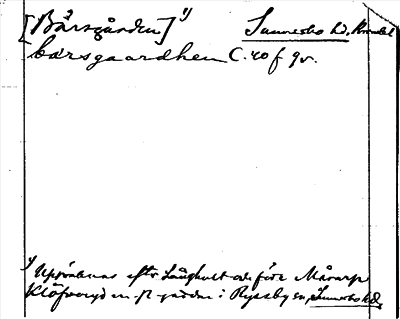 [Bårsgården] 1) Sunnerbo hd, Kronobel
barsgaardhen C. 40 f 9v.
1) Uppräknas efter Långhult och före Mårarp
Klöfveryd m. fl. gårdar i Ryssby sn, Sunnerbo hd.